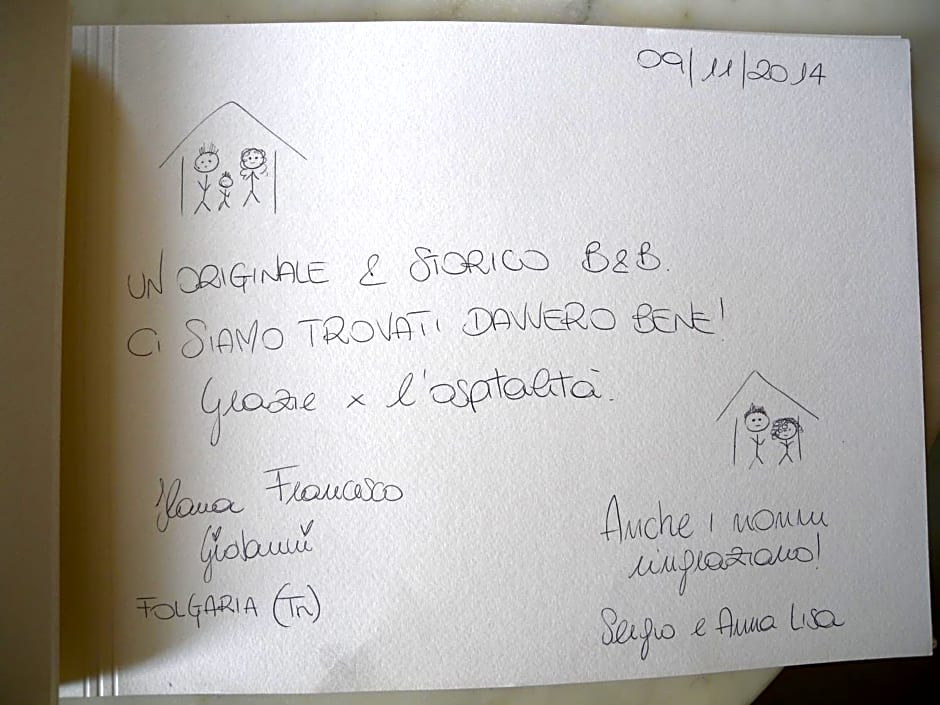 09/11/2014
UN ORIGINALE & STORICO B&B.
CI SIAMO TROVATI DAVVERO BENE!
Grazie x l'ospitalità.
Ilaria Francesco
Giovanni
FOLGARIA (Tn)
Anche i nonni
ringraziano!
Sergio e Anna Lisa